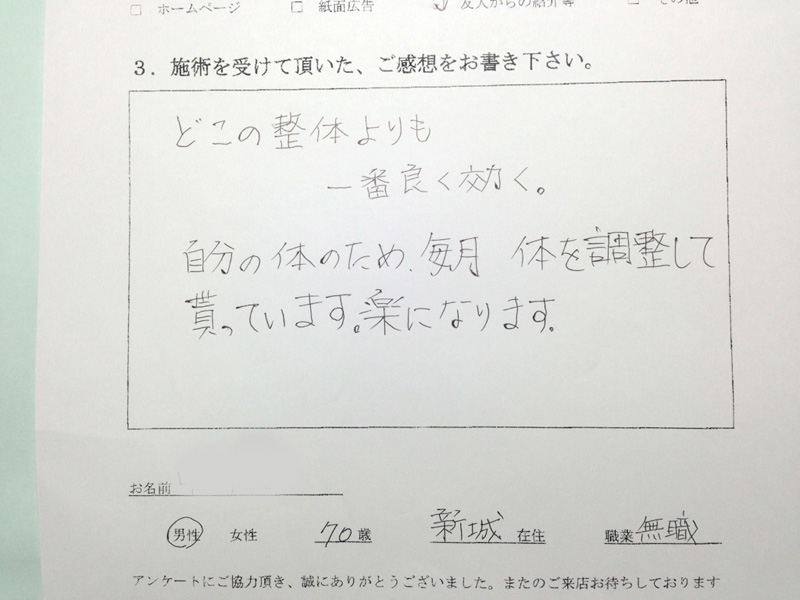 □ ホームページ □ 紙面広告 ☑ 友人からの紹介等 □ その他
3．施術を受けて頂いた、ご感想をお書き下さい。
どこの整体よりも
一番良く効く。
自分の体のため、毎月 体を調整して
貰っています。楽になります。
お名前
男性 女性 70歳 新城 在住 職業 無職
アンケートにご協力頂き、誠にありがとうございました。またのご来店お待ちしております